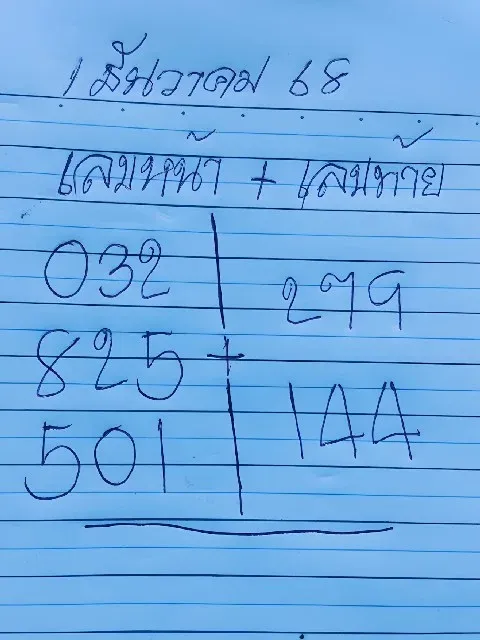 1 ธันวาคม 68
เลขหน้า + เลขท้าย
032 279
825 +
501 144